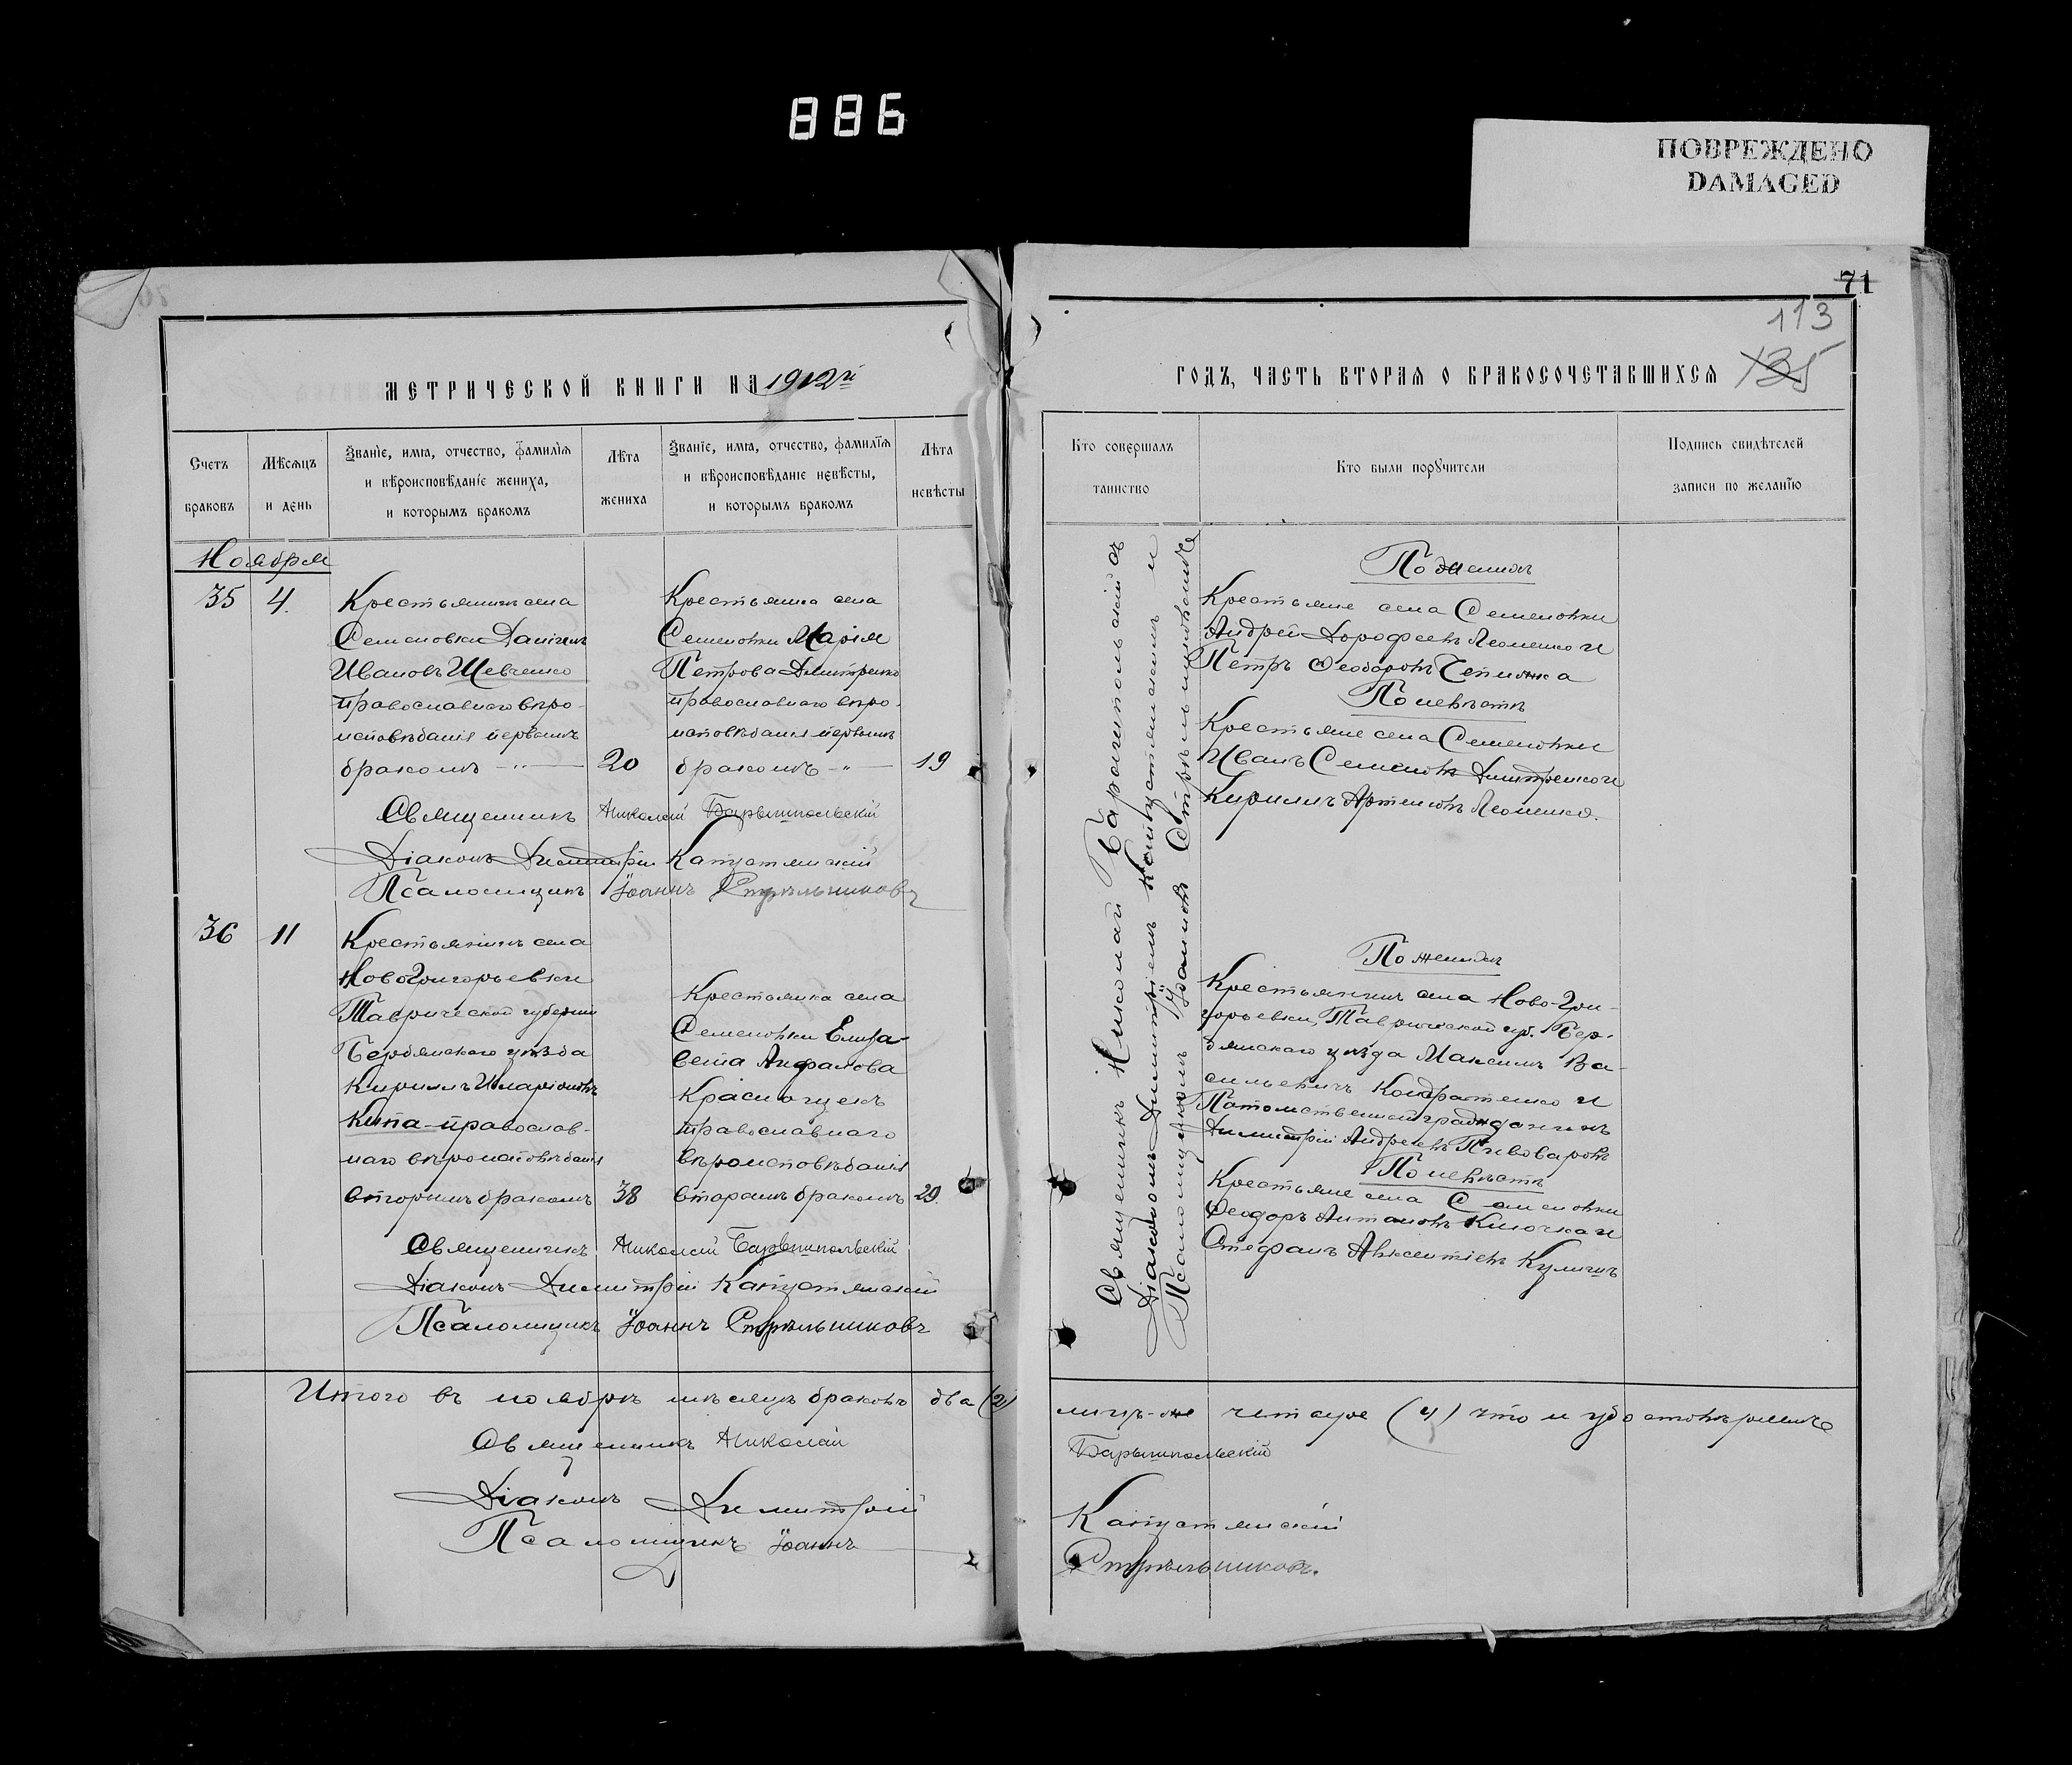 886
ПОВРЕЖДЕНО
DAMAGED
71
113
135
МЕТРИЧЕСКОЙ КНИГИ НА 1912й
ГОДЪ, ЧАСТЬ ВТОРАЯ О БРАКОСОЧЕТАВШИХСЯ
Счетъ
браковъ
Мѣсяцъ
и день
Званіе, имя, отчество, фамилія
и вѣроисповѣданіе жениха,
и которымъ бракомъ
Лѣта
жениха
Званіе, имя, отчество, фамилія
и вѣроисповѣданіе невѣсты,
и которымъ бракомъ
Лѣта
невѣсты
Кто совершалъ
таинство
Кто были поручители
Подпись свидѣтелей
записи по желанію
Ноября
35
4.
Крестьянинъ села
Семеновки Даніилъ
Ивановъ Шевченко
православнаго вѣро-
исповѣданія первымъ
бракомъ -"-
20
Крестьянка села
Семеновки Марія
Петрова Дмитренко
православнаго вѣро-
исповѣданія первымъ
бракомъ -"-
19
Священникъ Николай Барышпольскій
Діаконъ Димитрій Капустянскій
Псаломщикъ Іоаннъ Стрѣльниковъ
36
11
Крестьянинъ села
НовоГригорьевки
Таврической губерніи
Бердянскаго уѣзда
Кириллъ Иларіоновъ
Кипа - православ-
наго вѣроисповѣданія
вторымъ бракомъ
38
Крестьянка села
Семеновки Елиза-
вета
православнаго
вѣроисповѣданія
вторымъ бракомъ
29.
Священникъ Николай Барышпольскій
Діаконъ Димитрій Капустянскій
Псаломщикъ Іоаннъ Стрѣльниковъ
Священникъ Николай Барышпольскій съ
Діакономъ Димитріемъ Капустянскимъ и
Псаломщикомъ Іоанномъ Стрѣльниковымъ
По женихѣ
Крестьяне села Семеновки
Андрей Дорофеевъ Леоненко и
Петръ Феодоровъ Чепижка
По невѣстѣ
Крестьяне села Семеновки
Иванъ Семеновъ Дмитренко и
Кириллъ Артемовъ Леоненко.
По женихѣ
Крестьянинъ села Ново-Гри-
горьевки, Таврической губ. Бер-
дянскаго уѣзда Максимъ Ва-
сильевичъ Кондратенко и
Потомственный гражданинъ
Димитрій Андреевъ Пивоваровъ
По невѣстѣ
Крестьяне села Семеновки
Феодоръ Антоновъ Клочка и
Стефанъ Авксентіевъ Кулишъ
Итого въ ноябрѣ мѣсяцѣ браковъ два (2)
лицъ-же четыре (4) что и удостовѣряемъ
Священникъ Николай
Барышпольскій
Діаконъ Димитрій
Капустянскій
Псаломщикъ Іоаннъ
Стрѣльниковъ.